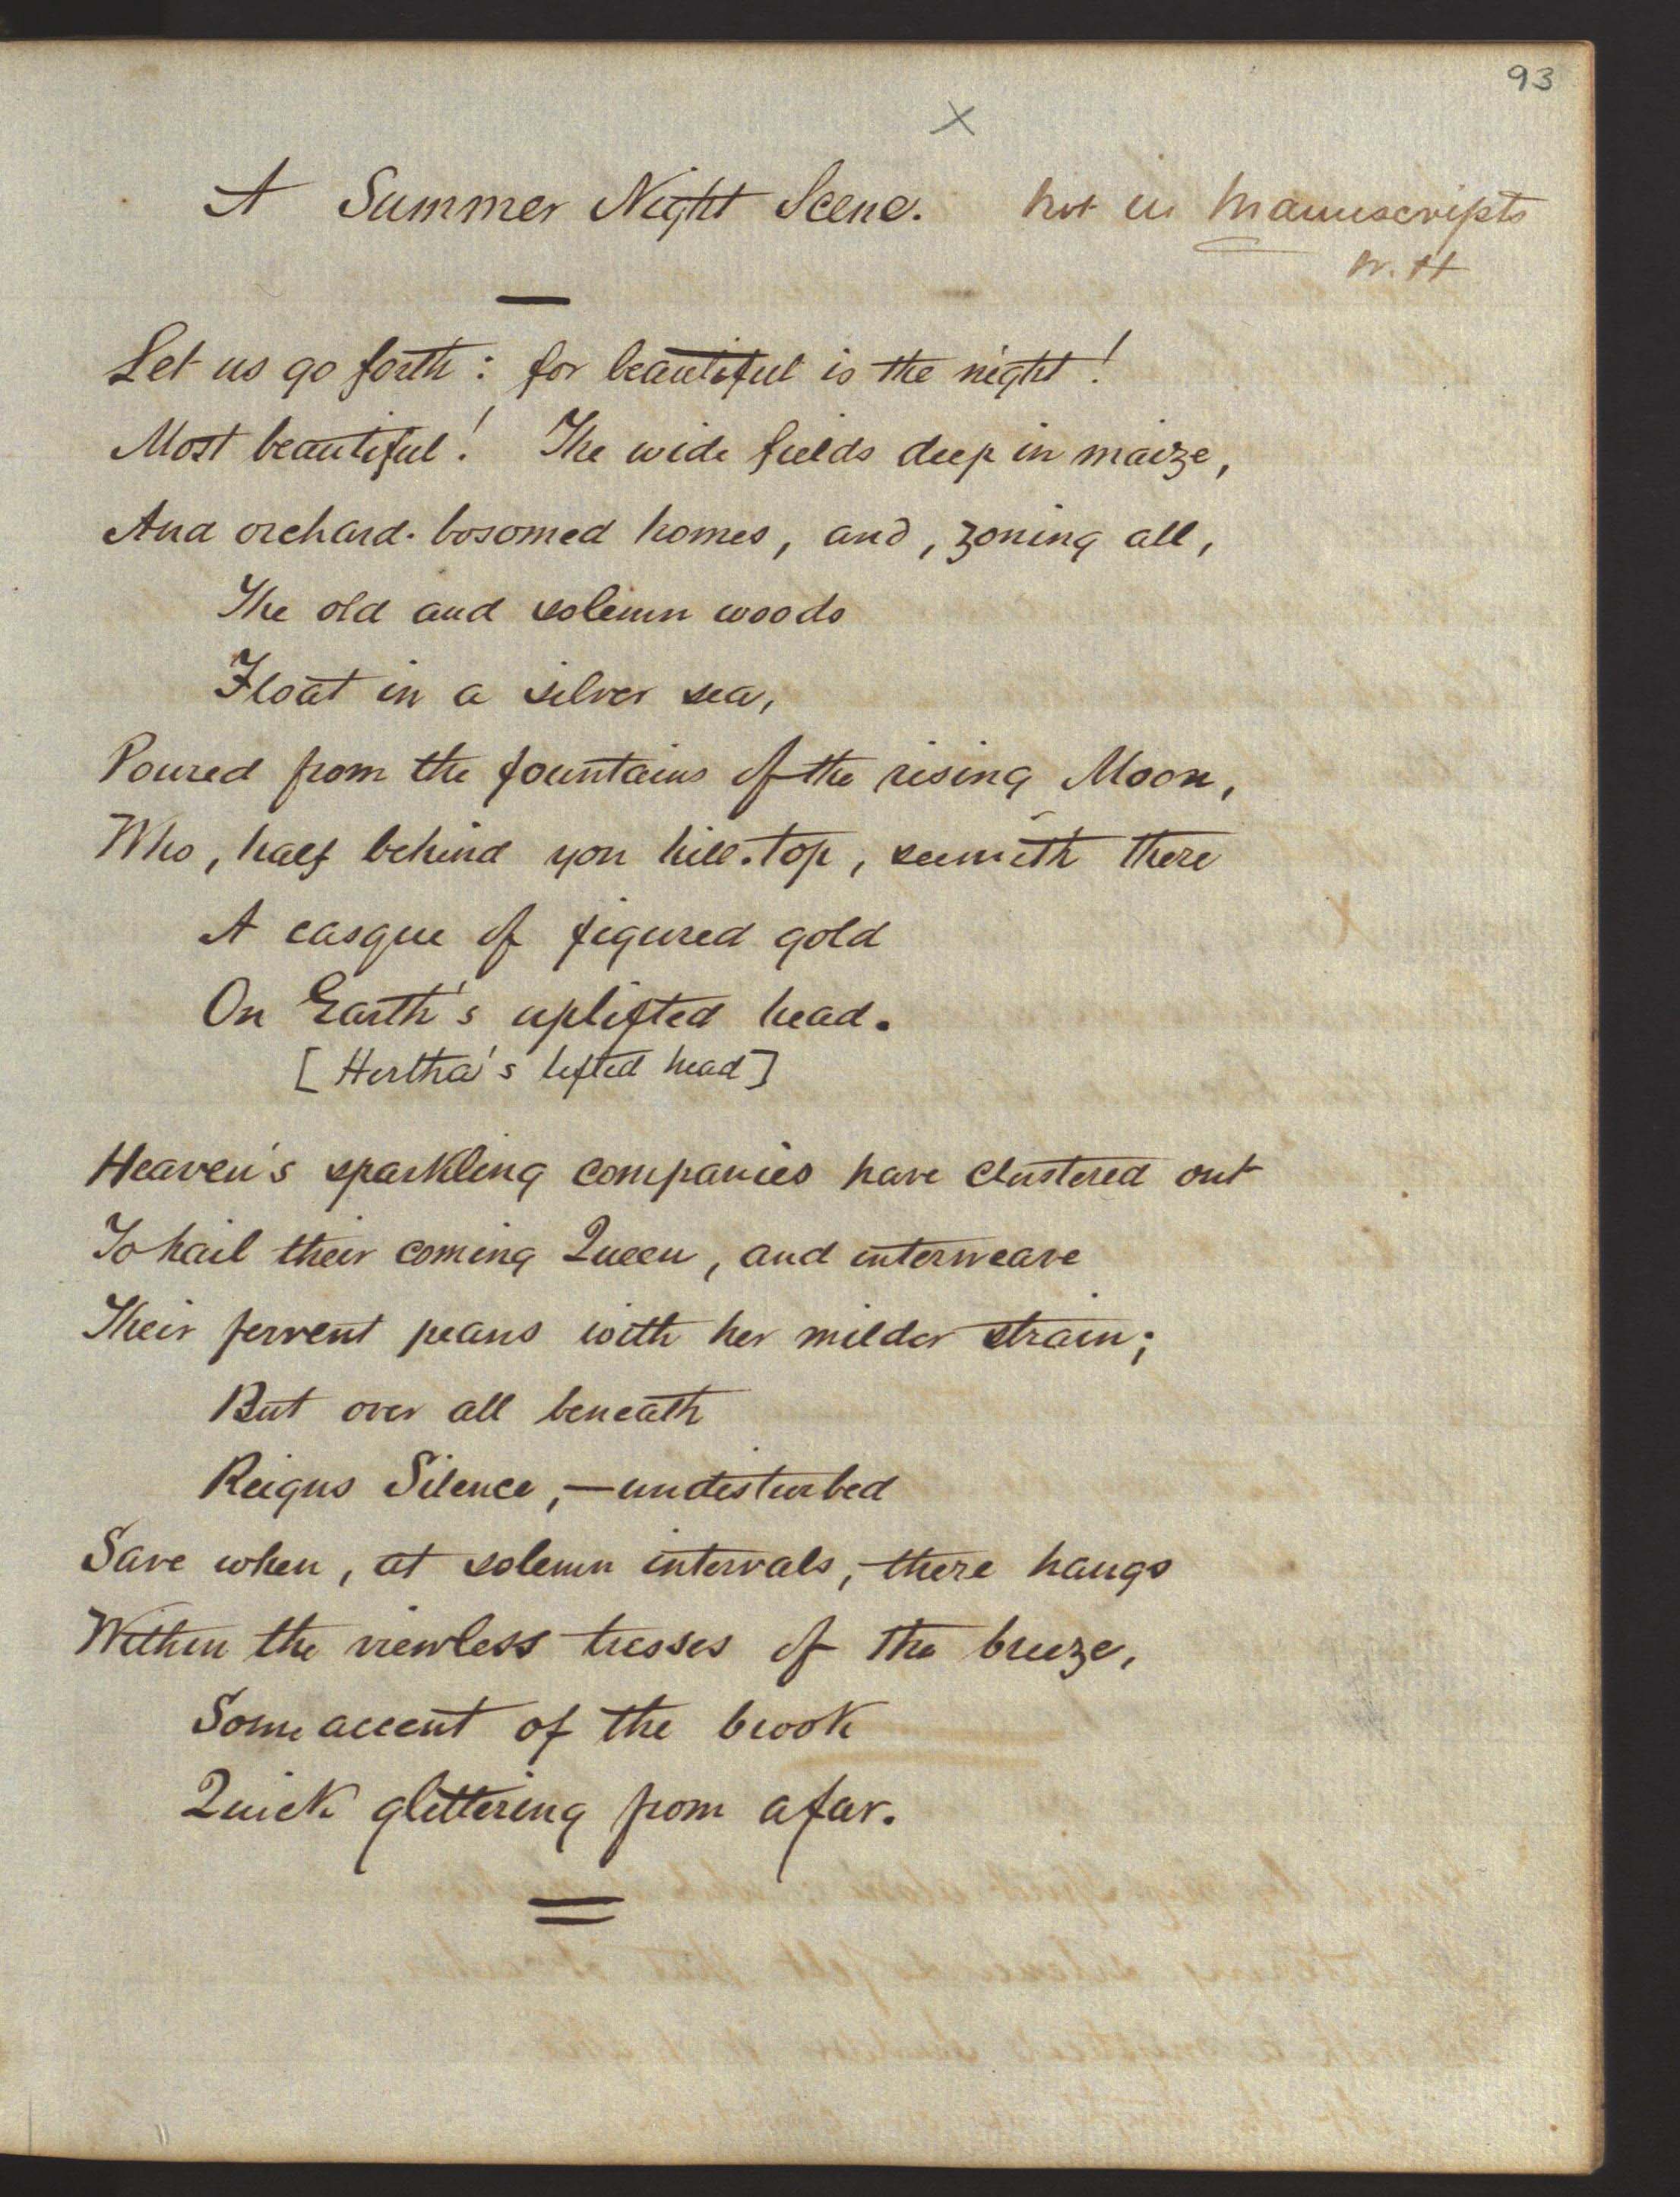 93
X
A Summer Night Scene. Not in Manuscripts
W. H
Let us go forth: for beautiful is the night!
Most beautiful! The wide fields deep in maize,
And orchard-bosomed homes, and, zoning all,
The old and solemn woods
Float in a silver sea,
Poured from the fountains of the rising Moon,
Who, half behind yon hill-top, seemeth there
X
A casque of figured gold
On Earth's uplifted head.
[Hertha's lifted head]
Heaven's sparkling companies have clustered out
To hail their coming Queen, and interweave
Their fervent peans with her milder strain;
But over all beneath
Reigns Silence,—undisturbed
Save when, at solemn intervals, there hangs
Within the viewless tresses of the breeze,
Some accent of the brook
Quick glittering from afar.